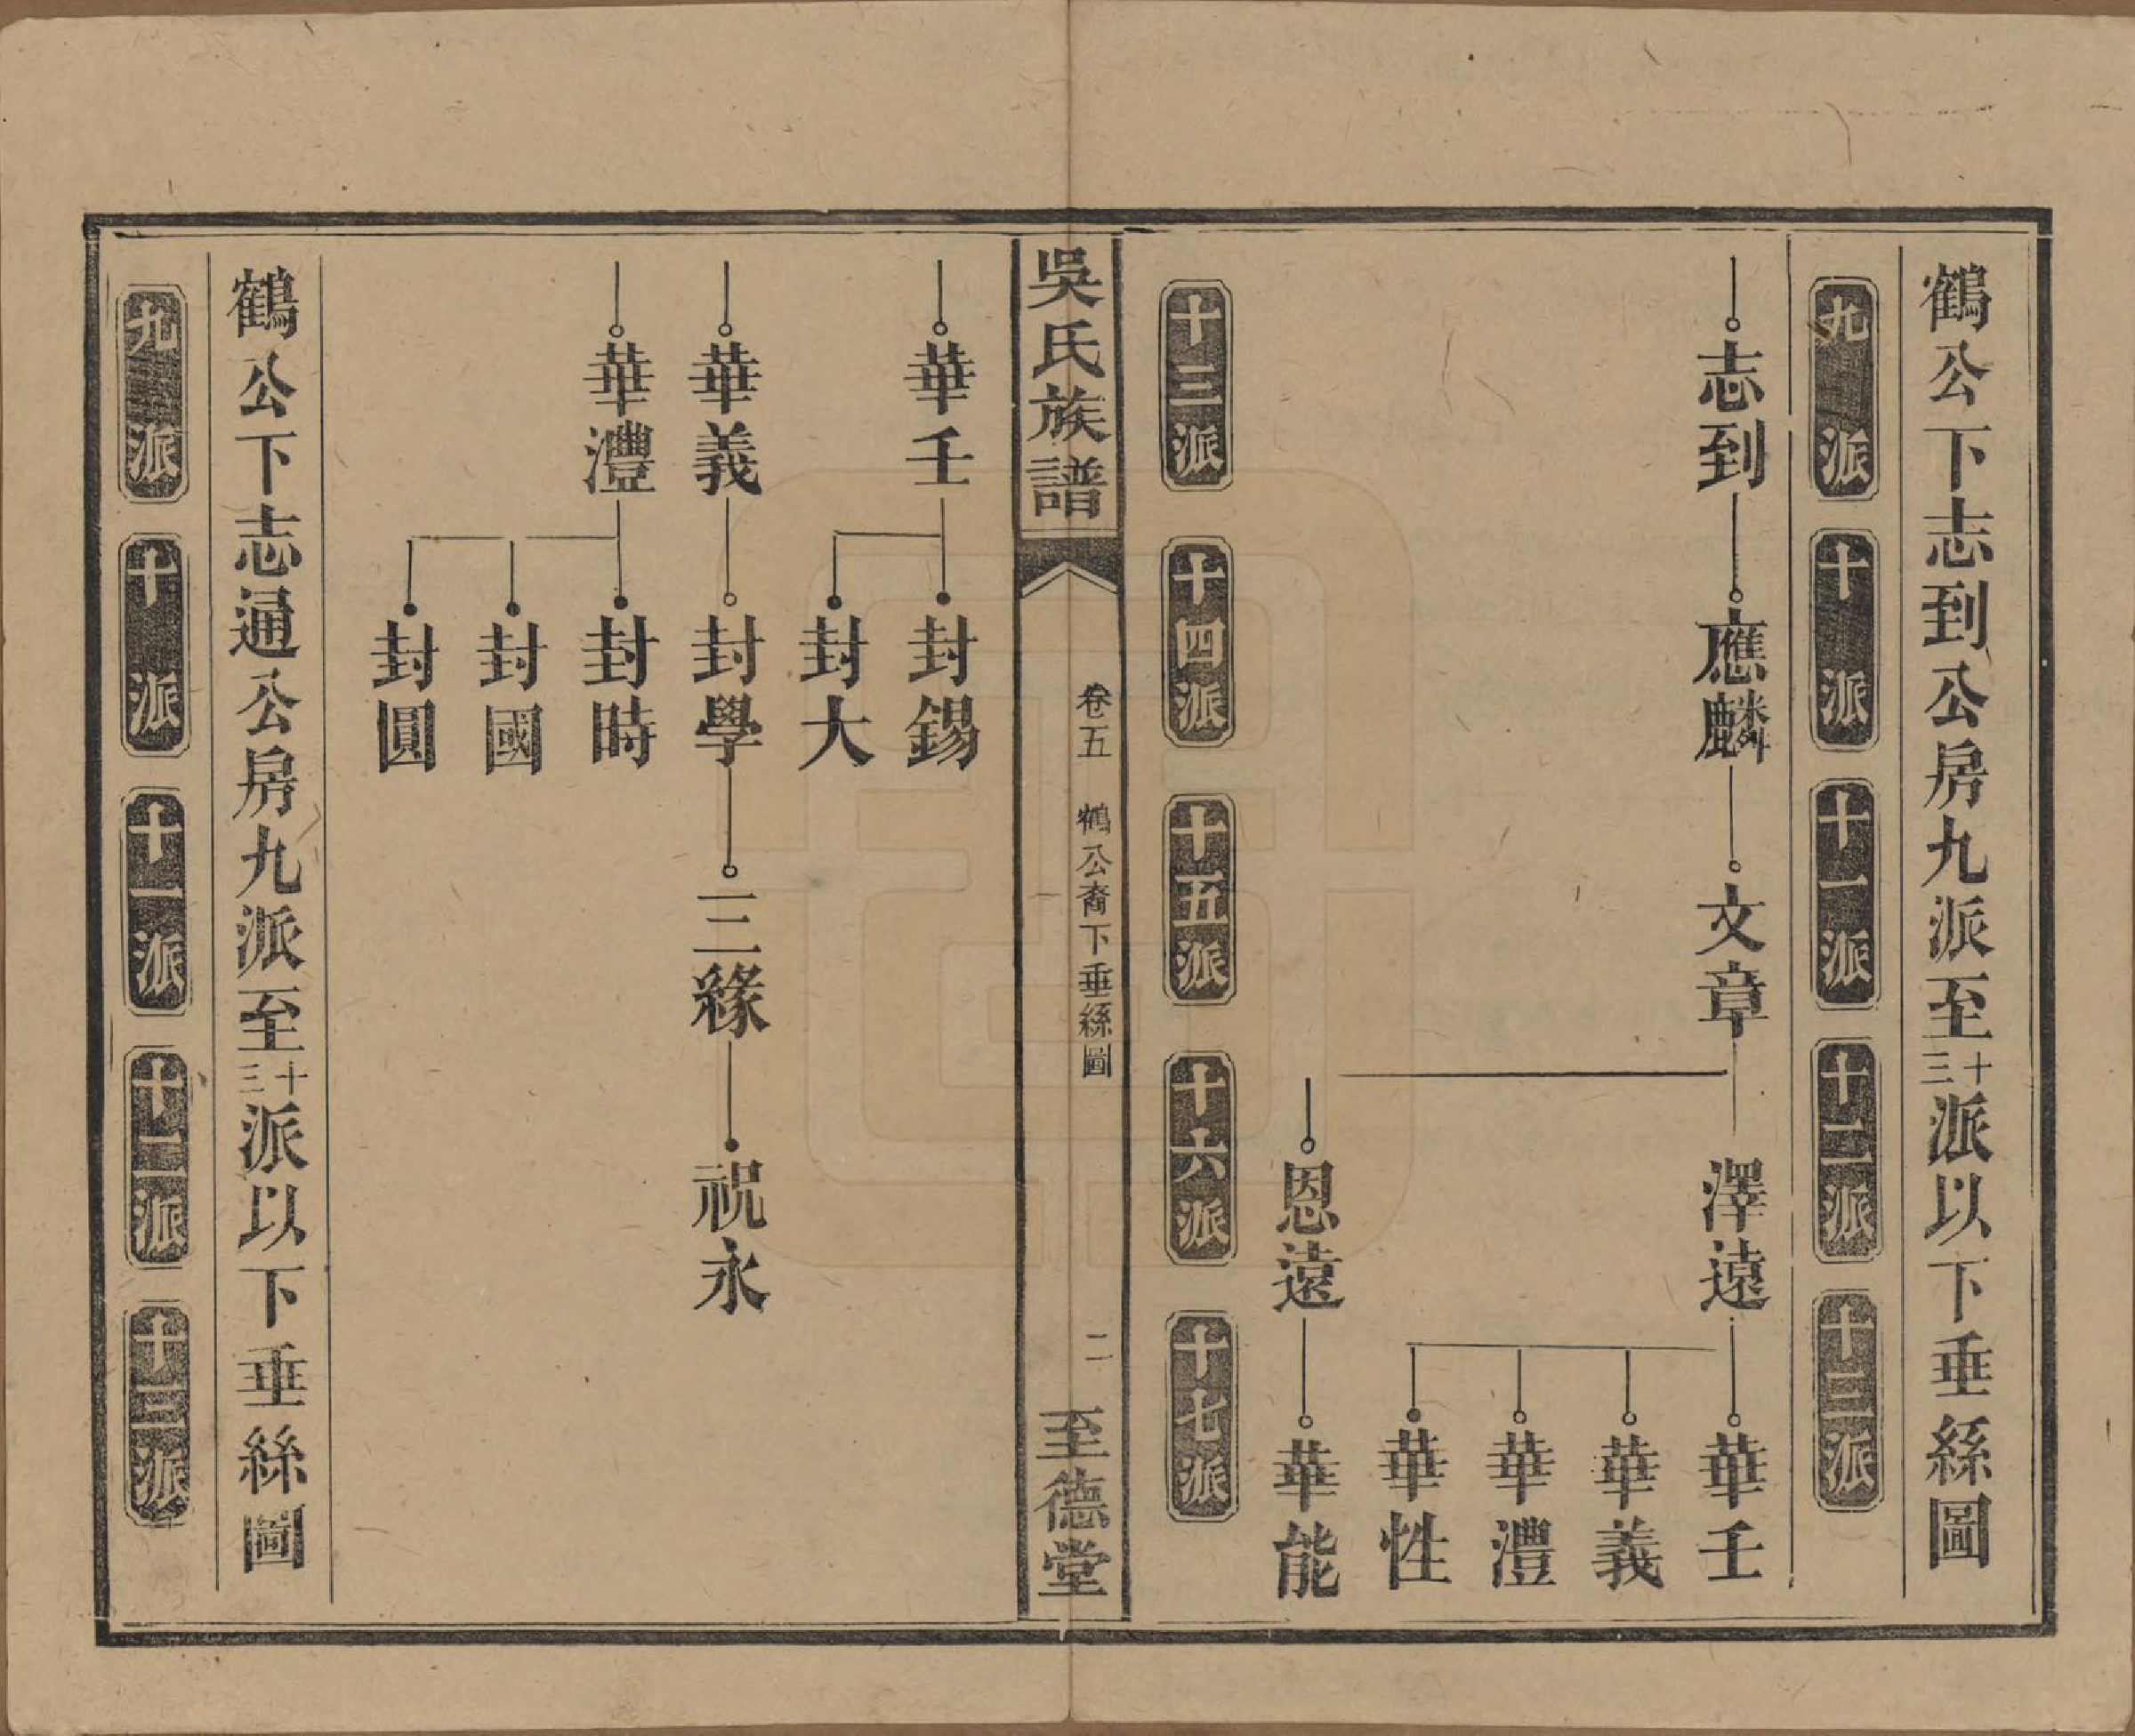 鶴公下志到公房九派至十三派以下垂絲圖
九派
十派
十一派
十二派
十三派
志到
應麟
文章
澤遠
華壬
華義
華澧
華性
恩遠
華能
十三派
十四派
十五派
十六派
十七派
吳氏族譜
卷五 鶴公裔下垂絲圖
二
至德堂
華壬
封錫
封大
華義
封學
三緣
祝永
華澧
封時
封國
封圓
鶴公下志通公房九派至十三派以下垂絲圖
九派
十派
十一派
十二派
十三派